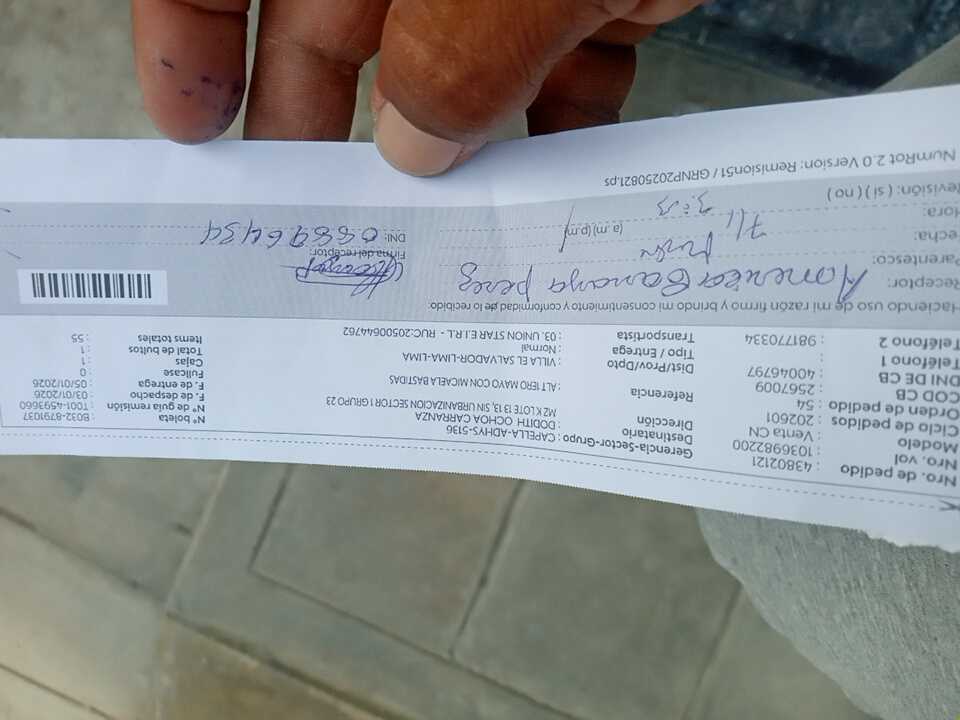 Nro. de pedido : 43802121
Nro. vol : 1036982200
Modelo : Venta CN
Ciclo de pedidos : 202601
Orden de pedido : 54
COD CB : 2567009
DNI DE CB : 40046797
Teléfono 1 :
Teléfono 2 : 981770334
Gerencia-Sector-Grupo : CAPELLA-ADHYS-5136
Destinatario : DODITH OCHOA CARRANZA
Dirección MZ K LOTE 13 13, SIN URBANIZACION SECTOR 1 GRUPO 23
Referencia : ALTERO MAYO CON MICAELA BASTIDAS
Dist/Prov/Dpto VILLA EL SALVADOR-LIMA-LIMA
Tipo / Entrega : Normal
Transportista : 03. UNION STAR E.I.R.L. - RUC:20500644762
Nº boleta : B032-8791037
Nº de guía remisión : T001-4593660
F. de despacho : 03/01/2026
F. de entrega : 05/01/2026
Fullcase : 0
Cajas : 1
Total de bultos : 1
Items totales : 55
Haciendo uso de mi razón firmo y brindo mi consentimiento y conformidad de lo recibido.
Receptor: America Camaya perez
Parentesco:
echa: 7/1
Hora: 3:13 (a.m)(p.m)
Revisión: ( si ) ( no )
Firma del receptor:
DNI: 08896434
NumRot 2.0 Version: Remision51 / GRNP20250821.ps